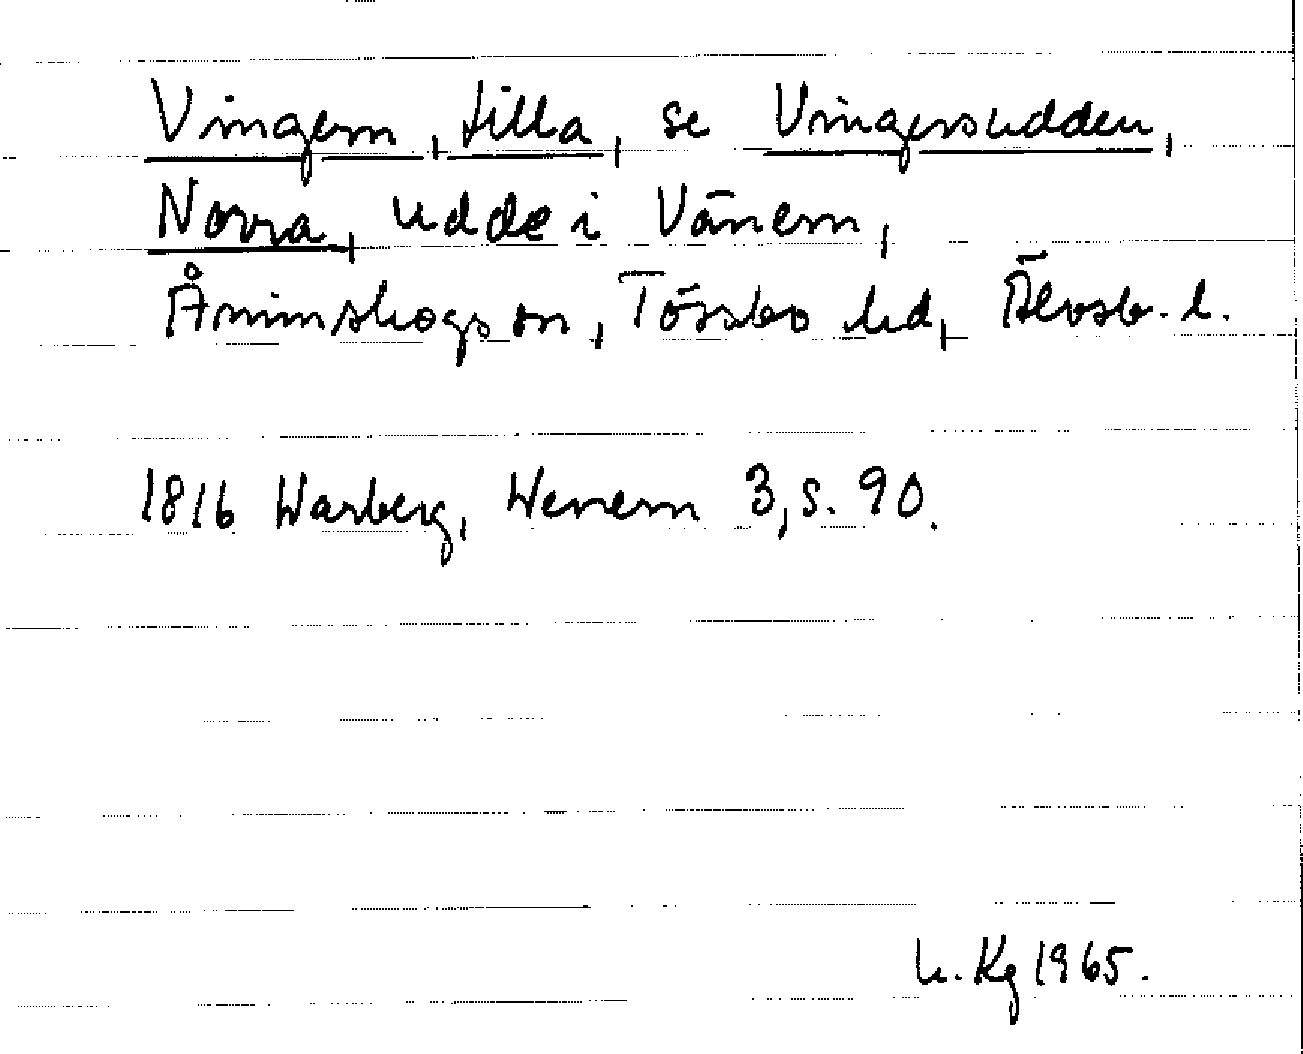 Vingern, Lilla, se Vingersudden,
Norra, udde i Vänern,
Ånimskogs sn, Tössbo hd, Älvsb. l.
1816 Warberg, Wenern 3, s. 90.
Kg 1965.